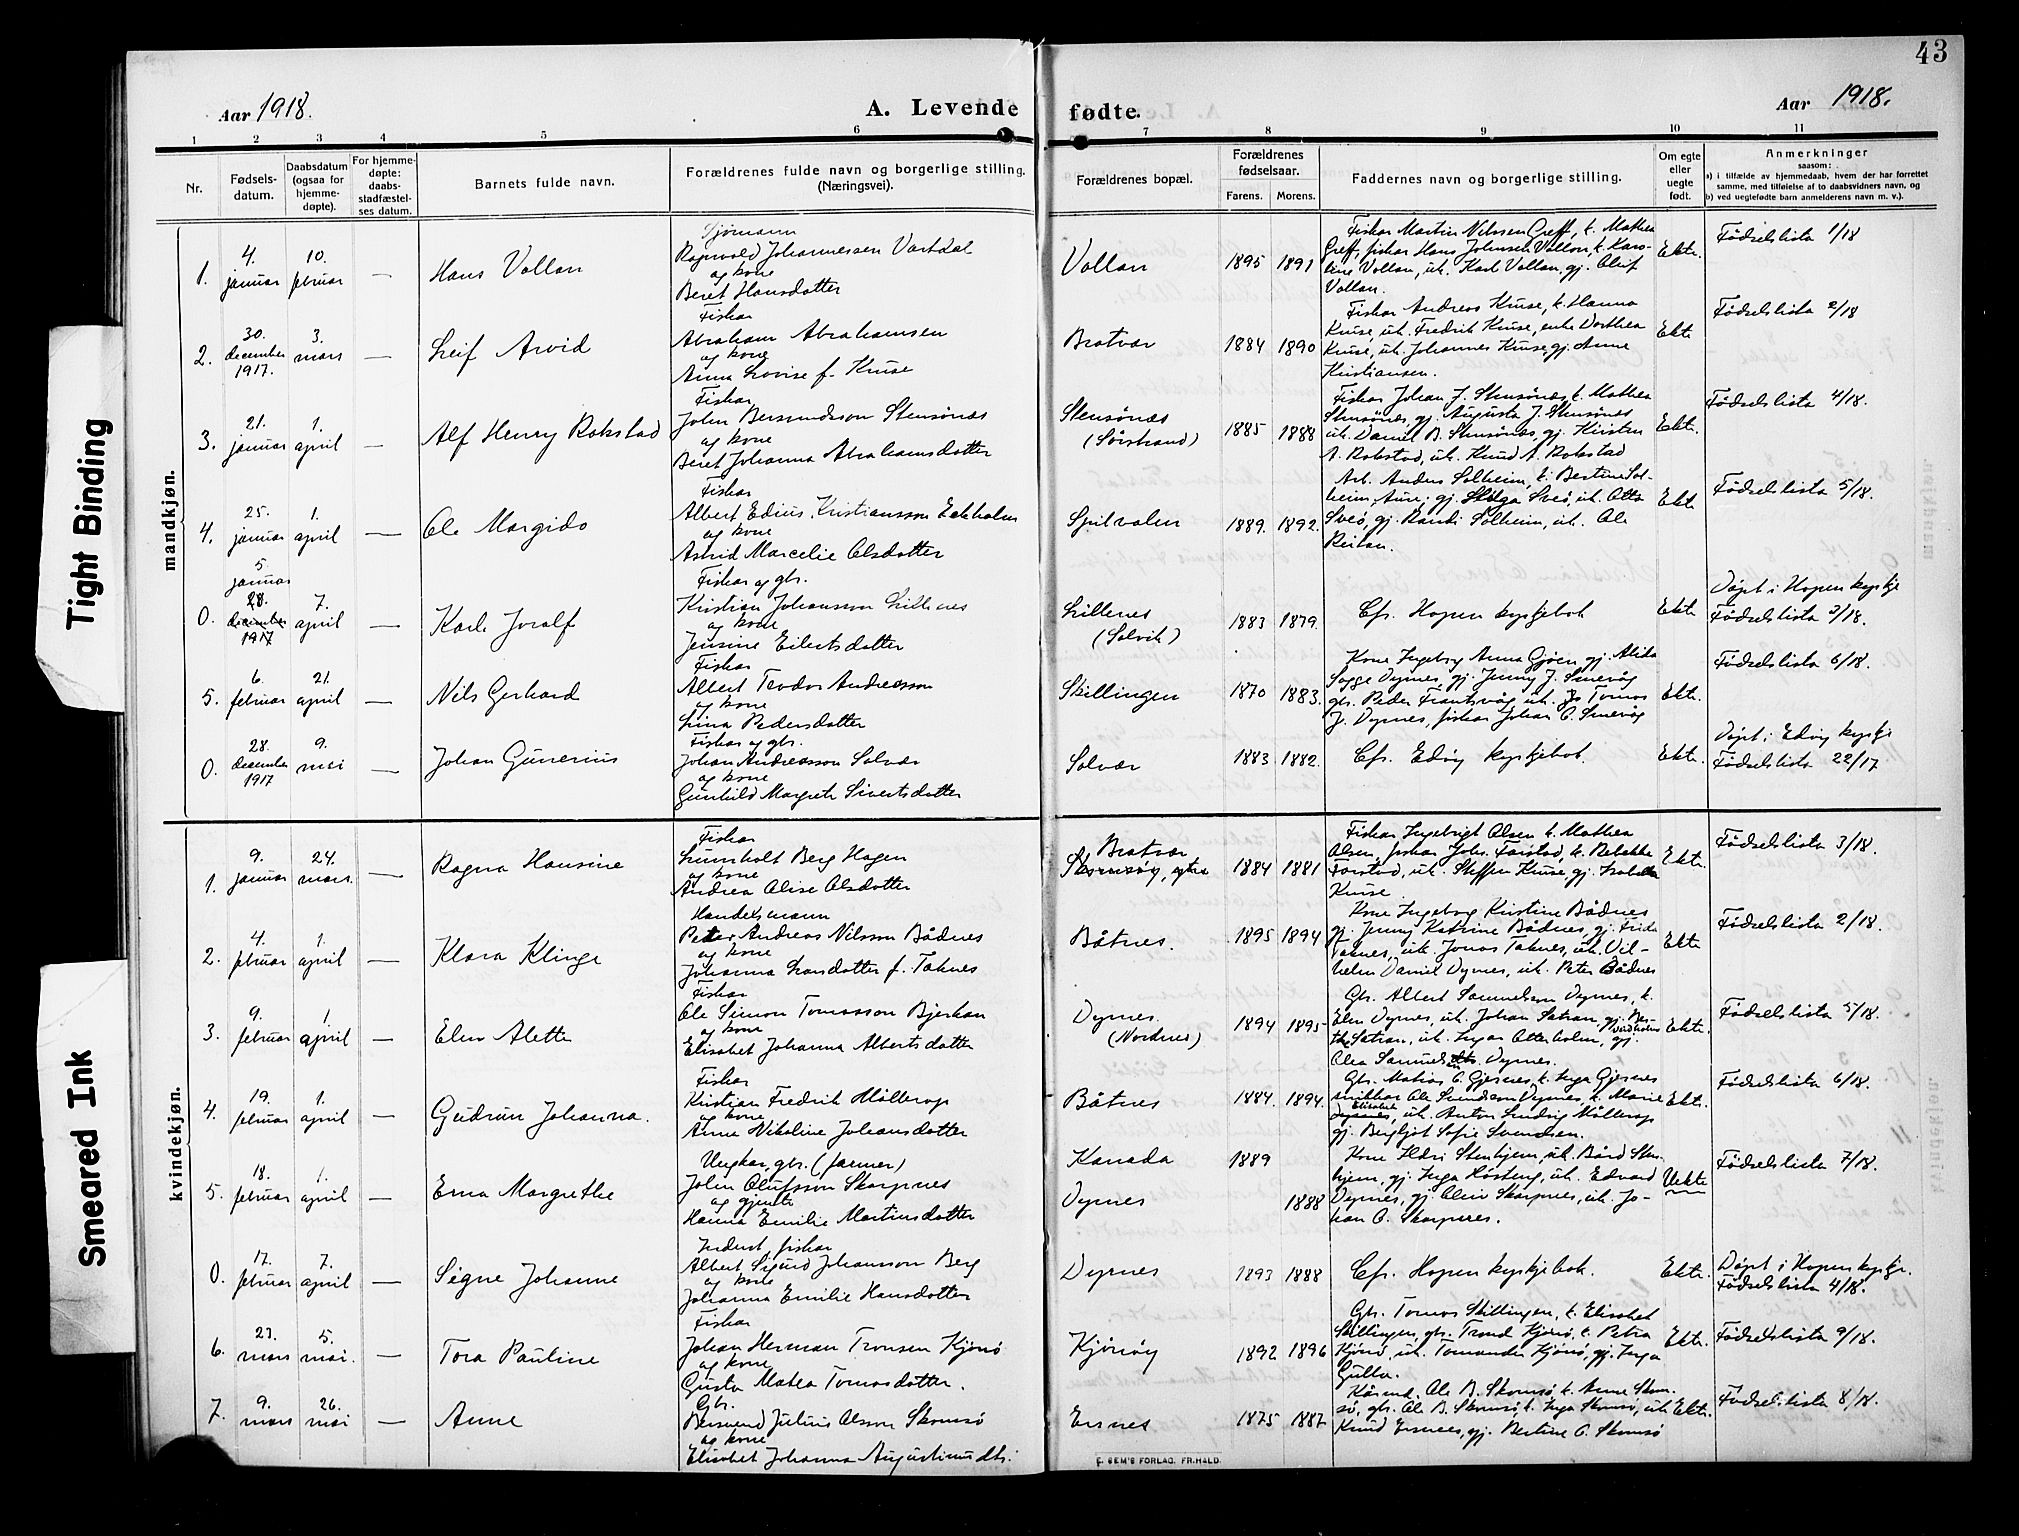 43
Aar 1918.
A. Levende fødte.
Aar 1918.
1 2 3 4 5 6 7 8 9 10 11
Nr.
Fødsels-
datum.
Daabsdatum
(ogsaa for
hjemme-
døpte).
For hjemme-
døpte:
daabs-
stadfæstel-
ses datum.
Barnets fulde navn.
Forældrenes fulde navn og borgerlige stilling.
(Næringsvei).
Forældrenes bopæl.
Forældrenes
fødselsaar.
Farens. Morens.
Faddernes navn og borgerlige stilling.
Om egte
eller
uegte
født.
Anmerkninger
saasom:
a) i tilfælde av hjemmedaab, hvem der har forrettet
samme, med tilføielse af to daabsvidners navn, og
b) ved uegtefødte barn anmelderens navn m. v.).
mandkjøn.
1.
4.
januar
10.
februar
—
Hans Vollan
Sjømann
Ragnvald Johannessen Vartdal
og kone
Beret Hansdatter
Vollan
1895 1891
Fiskar Martin Nilssen Greff, k. Mathea
Greff, fiskar Hans Johnsen Vollan, k. Karo-
line Vollan, uk. Karl Vollan, gj. Oluf
Vollan.
Ekte.
Fødselslista 1/18
2.
30.
december
1917.
3.
mars
—
Leif Arvid
Fiskar
Abraham Abrahamsen
og kone
Anna Lovise f. Kruse
Bratvær
1884 1890
Fiskar Andreas Kruse, k. Hanna
Kruse, uk. Fredrik Kruse, enke Dorthea
Kruse, uk. Johannes Kruse, gj. Anne
Kristiansen.
Ekte
Fødselslista 2/18
3.
21.
januar
1.
april
—
Alf Henry Rokstad
Fiskar
John Bersundsson Stensönes
og kone
Beret Johanna Abrahamsdatter
Stensönes
(Sørstrand)
1885 1888
Fiskar Johan J. Stensönes, k. Mathea
Stensönes, gj. Augusta J. Stensönes
uk. Daniel B. Stensönes, gj. Kirsten
A. Rokstad, uk. Knud A. Rokstad
Ekte.
Fødselslista 4/18.
4.
25.
januar
1.
april
—
Ole Margido
Fiskar
Albert Edius Kristiansson Eekholm
og kone
Astrid Marcelie Olsdatter
1889. 1892.
Arb. Anders Solheim, k. Bertine Sol-
heim, Aure; gj. Helga Sveö, uk. Otto
Sveö, gj. Randi Solheim, uk. Ole
Reitan.
Ekte
Fødselslista 5/18.
0.
5.
januar
28.
december
1917
7.
april
—
Karl Joralf
Fiskar og gbr.
Kristian Johansson Lillenes
og kone
Jensine Eilertsdatter
Lillenes
(Solvik)
1883 1879.
Cfr. Hopen kyrkjebok
Ekte
Døpt i Hopen kyrkje
Fødselslista 3/18.
5.
6.
februar
21.
april
—
Nils Gerhard
Fiskar
Albert Teodor Andreasson
og kone
Lina Pedersdatter
Skillingen
1870 1883.
Kone Ingeborg Anna Gjøen, gj. Alida
Sagge Dyrnes, gj. Jenny J. Smevåg
gbr. Peder Frantsvåg, uk. Tomas
J. Dyrnes, fiskar Johan C. Smevåg
Ekte.
Fødselslista 6/18.
0.
28.
december
1917
9.
mai
—
Johan Gunerius
Fiskar og gbr.
Johan Andreasson Solvær
og kone
Gunhild Margrete Sivertsdatter
Solvær
1883 1882.
Cfr. Edöy kyrkjebok.
Ekte.
Døpt i Edöy kyrkje
Fødselslista 22/17
kvindekjøn.
1.
9.
januar
24.
mars.
Ragna Hansine
Fiskar
Lunholt Berg Hagen
og kone
Andrea Olise Olsdatter
Bratvær
1884 1881
Fiskar Ingebrigt Olsen, k. Mathea
Olsen, fiskar Joh. Forstad, k. Rebekka
Forstad, uk. Steffen Kruse, gj. Isabella
Kruse
Ekte.
Fødselslista 3/18.
2.
4.
februar
1.
april
—
Klara Klinge
Handelsmann
Peter Andreas Nilsson Bådnes
og kone
Johanna Larsdatter f. Taknes
Båtnes.
1895 1894
Kone Ingeborg Kristine Bådnes
gj. Jenny Katrine Bådnes, gj. Frida
Taknes, uk. Jonas Taknes, uk. Vil-
helm Daniel Dyrnes, uk. Peter Bådnes
Ekte
Fødselslista 2/18.
3.
9.
februar
1.
april
—
Elen Alette
Fiskar
Ole Simon Tomasson Bjerkan
og kone
Elisabet Johanna Albertsdatter
Dyrnes
(Nordnes)
1894 1895
Gbr. Albert Samuelsen Dyrnes, k.
Elen Dyrnes, uk. Johan Satran, gj.
Satran, uk. Ingar Otterholm, gj.
Olea Samuelsen Dyrnes.
Ekte.
Fødselslista 5/18.
4.
19.
februar
1.
april
—
Gudrun Johanna.
Fiskar
Kristian Fredrik Möllerop
og kone
Anne Nikoline Johansdatter
Båtnes
1884. 1894.
Gbr. Matias C. Gjernes, k. Inga Gjernes
snikkar Ole Svendsen Dyrnes, k. Marie
Elisabet
Dyrnes, uk. Anton Ludvig Möllerop
gj. Bergljot Sofie Svendsen.
Ekte.
Fødselslista 6/18.
5.
18.
februar
1.
april
—
Erna Margrethe
Ungkar, gbr. (farmer)
John Olufsson Skarpnes
og gjente
Hanna Emilie Martinsdatter
Kanada
Dyrnes
1889
1888
Kone Hdri Stenhjem, uk. Bård Sten-
hjem, gj. Inga Hösteng, uk. Edvard
Dyrnes, gj. Oline Skarpnes, uk. Jo-
han O. Skarpnes.
Uekte
Fødselslista 7/18.
0.
17.
februar
7.
april
—
Signe Johanne
Inderst, fiskar
Albert Sigurd Johansson Berg
og kone
Johanna Emilie Hansdatter
Dyrnes
1893 1888
Cfr. Hopen kyrkjebok.
Ekte.
Døpt i Hopen kyrkje.
Fødselslista 4/18.
6.
23.
mars
5.
mai.
—
Tora Pauline
Fiskar
Johan Herman Tronsen Kjönö
og kone
Gusta Matea Tomasdatter.
Kjönöy
1892 1896
Gbr. Tomas Skillingen, k. Elisabet
Skillingen, gbr. Trond Kjönö, k. Petra
Kjönö, uk. Tomander Kjönö, gj. Inga
Gulla.
Ekte.
Fødselslista 9/18.
7.
9.
mars
26.
mai
—
Anne
Gbr.
Bersvend Julius Olsson Skomsö
og kone
Elisabet Johanna Augustinusdtr.
Ernes
1875 1887.
Kårmd. Ole B. Skomsö, k. Anne Skom-
sö, gbr. Ole B. Skomsö, k. Inga Skomsö, uk
Knud Ernes, gj. Bertine O. Skomsö
Ekte.
Fødselslista 8/18.
E. SEM'S FORLAG. FR.HALD.
Tight Binding
Smeared Ink